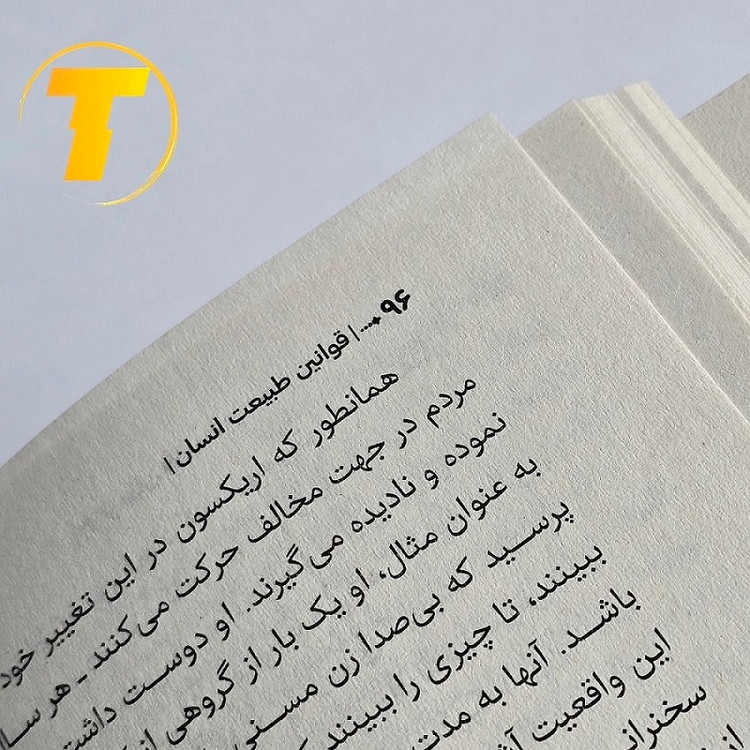 T
۹۶ ...| قوانین طبیعت انسان |
همانطور که اریکسون در این تغییر خود
مردم در جهت مخالف حرکت می‌کنند ـ هر
نموده و نادیده می‌گیرند. او دوست داشت
به عنوان مثال، او یک بار از گروهی
پرسید که بی‌صدا زن مسنی
ببینند، تا چیزی را ببینند
باشد. آنها به مدت
این واقعیت